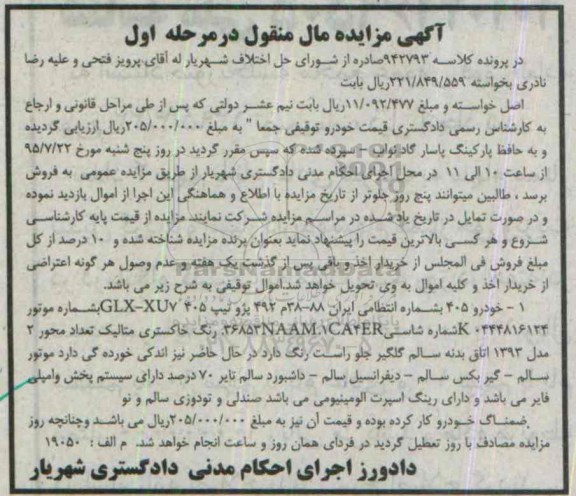 آگهی مزایده مال منقول درمرحله اول
در پرونده کلاسه ۹۴۲۷۹۳صادره از شورای حل اختلاف شهریار له آقای پرویز فتحی و علیه رضا
نادری بخواسته ۲۲۱/۸۴۹/۵۵۹ریال بابت
اصل خواسته و مبلغ ۱۱/۰۹۲/۴۷۷ریال بابت نیم عشر دولتی که پس از طی مراحل قانونی و ارجاع
به کارشناس رسمی دادگستری قیمت خودرو توقیفی جمعا " به مبلغ ۲۰۵/۰۰۰/۰۰۰ریال ارزیابی گردیده
و به حافظ پارکینگ پاسار گاد نواب – سپرده شده که سپس مقرر گردید در روز پنج شنبه مورخ ۹۵/۷/۲۲
از ساعت ۱۰ الی ۱۱ در محل اجرای احکام مدنی دادگستری شهریار از طریق مزایده عمومی به فروش
برسد ، طالبین میتوانند پنج روز جلوتر از تاریخ مزایده با اطلاع و هماهنگی این اجرا از اموال بازدید نموده
و در صورت تمایل در تاریخ یاد شده در مراسم مزایده شرکت نمایند. مزایده از قیمت پایه کارشناسی
شروع و هر کسی بالاترین قیمت را پیشنهاد نماید بعنوان برنده مزایده شناخته شده و ۱۰ درصد از کل
مبلغ فروش فی المجلس از خریدار اخذ و باقی پس از گذشت یک هفته و عدم وصول هر گونه اعتراضی
از خریدار اخذ و کلیه اموال به وی تحویل خواهد شد.اموال توقیفی به شرح زیر می باشد.
۱ – خودرو ۴۰۵ بشماره انتظامی ایران ۸۸–۳۸م ۴۹۲ پژو تیپ ۴۰۵ GLX-XU۷بشماره موتور
۰۴۴۴۸۱۶۱۲۴ Kشماره شاسی۳۶۸۵۳NAAM۱CA۴ER. رنگ خاکستری متالیک تعداد محور ۲
مدل ۱۳۹۳ اتاق بدنه سالم گلگیر جلو راست رنگ دارد در حال حاضر نیز اندکی خورده گی دارد موتور
سالم – گیر بکس سالم – دیفرانسیل سالم – داشبورد سالم تایر ۷۰ درصد دارای سیستم پخش وامپلی
فایر می باشد و دارای رینگ اسپرت الومینیومی می باشد صندلی و تودوزی سالم و نو
ضمناگ خودرو کار کرده بوده و قیمت آن نیز به مبلغ ۲۰۵/۰۰۰/۰۰۰ریال می باشد وچنانچه روز
مزایده مصادف با روز تعطیل گردید در فردای همان روز و ساعت انجام خواهد شد. م الف : ۱۹۰۵۰
دادورز اجرای احکام مدنی دادگستری شهریار